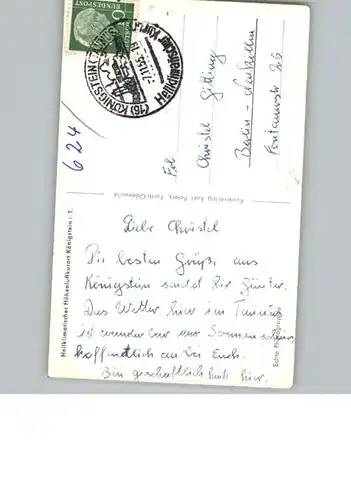 DEUTSCHE BUNDESPOST
(16) KÖNIGSTEIN
Heilklimatischer Kurort
624
Frl
Christel
Berlin -
Kunstverlag Karl Peters, Fürth-Odenwald
Heilklimatischer Höhenluftkurort Königstein i. T.
Echte Photographie
Liebe Christel
Die besten Grüße aus
Königstein sendet Dir Günter.
Das Wetter hier im Taunus
ist wunderbar nur Sonnenschein,
hoffentlich auch bei Euch.
Bin geschäftlich hier.